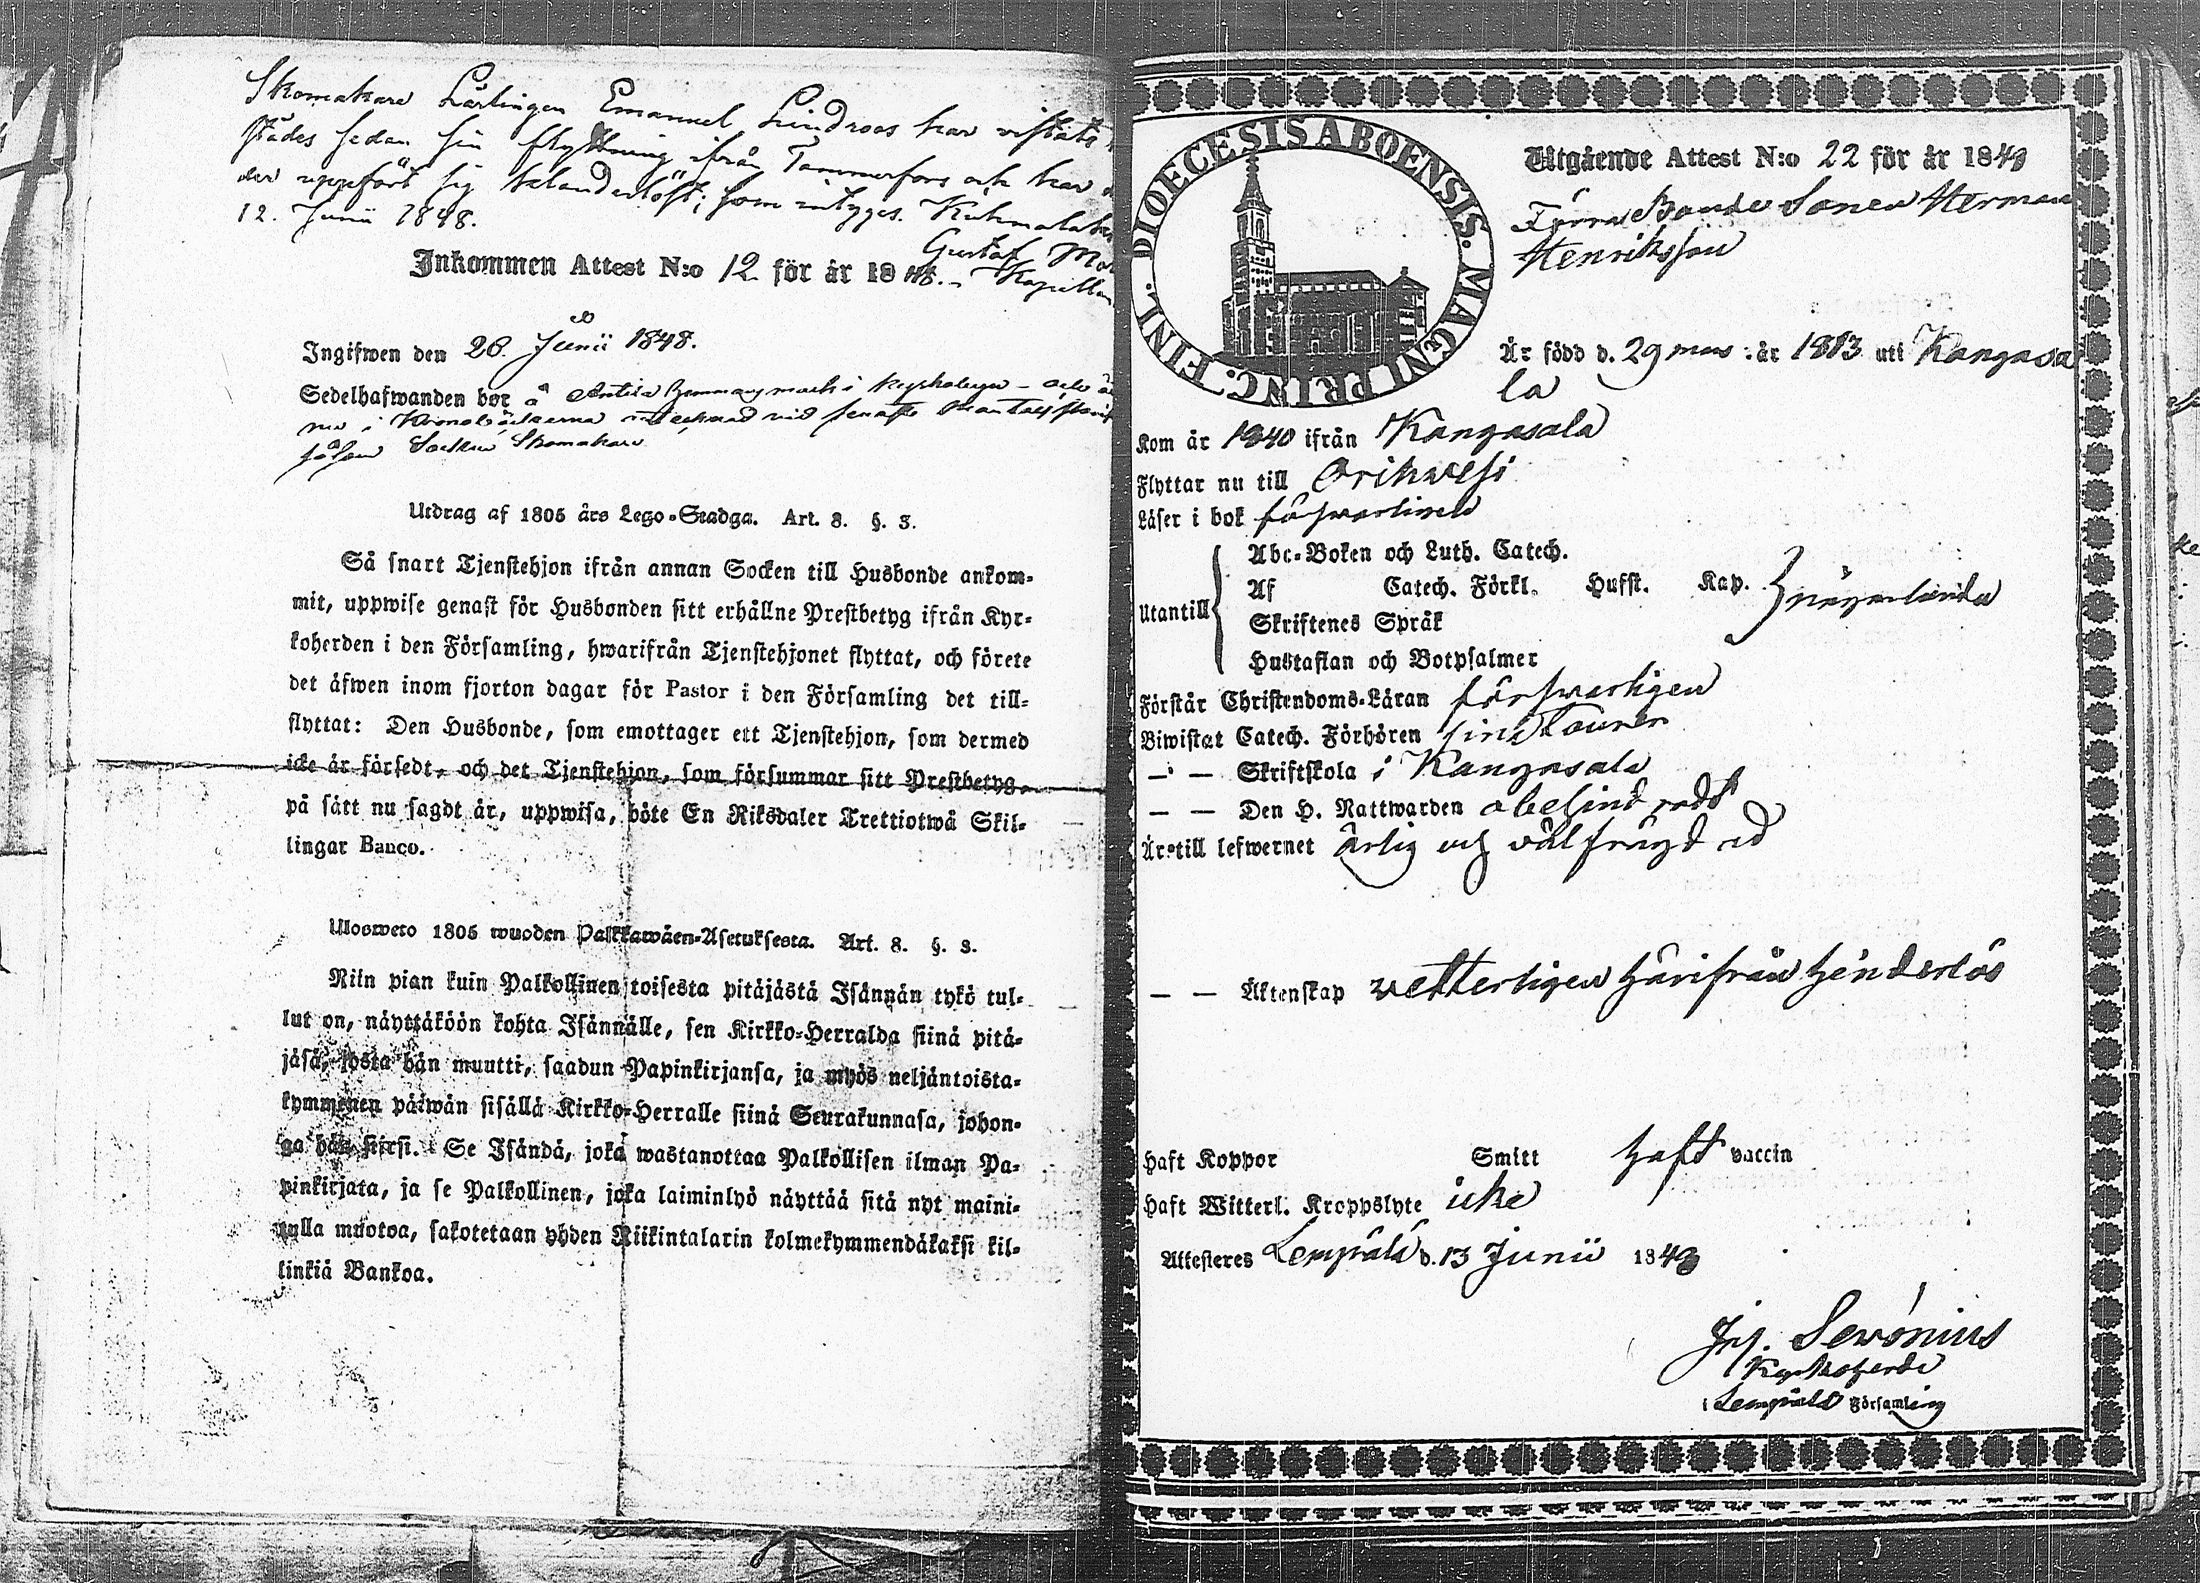 Skomakare Lärlingen Emanuel Lindroos har vistats
städes sedan sin flyttning ifrån Tammerfors och har
der uppfört sig klanderlöst; som intygas. Kuhmalahti
12. Junii 1848.
Gustaf
Kapellan
Inkommen Attest N:o 12 för år 1848.
Ingifwen den 28. Junii 1848.
Sedelhafwanden bor å Anttila hemman i Kyrkobyn och är
nu i
Socken Skomakare
Utdrag af 1805 års Lego-Stadga. Art. 8. §. 3.
Så snart Tjenstehjon ifrån annan Socken till Husbonde ankom-
mit, uppwise genast för Husbonden sitt erhållne Prestbetyg ifrån Kyr-
koherden i den Församling, hwarifrån Tjenstehjonet flyttat, och förete
det äfwen inom fjorton dagar för Pastor i den Församling det till-
flyttat: Den Husbonde, som emottager ett Tjenstehjon, som dermed
icke är försedt, och det Tjenstehjon, som försummar sitt Prestbetyg,
på sätt nu sagdt är, uppwisa, böte En Riksdaler Trettiotwå Skil-
lingar Banco.
Ulosweto 1805 wuoden Palkkawäen-Asetuksesta. Art. 8. §. 3.
Niin pian kuin Palkollinen toisesta pitäjästä Isännän tykö tul-
lut on, näyttäköön kohta Isännälle, sen Kirkko-Herralda siinä pitä-
jäsä, josta hän muutti, saadun Papinkirjansa, ja myös neljäntoista-
kymmenen päiwän sisällä Kirkko-Herralle siinä Seurakunnasa, johon-
ga hän siirsi. Se Isändä, joka wastanottaa Palkollisen ilman Pa-
pinkirjata, ja se Palkollinen, joka laiminlyö näyttää sitä nyt maini-
tulla muotoa, sakotetaan yhden Riikintalarin kolmekymmendäkaksi kil-
linkiä Bankoa.
DIOECESIS ABOENSIS. MAGNI PRINC. FINL.
Utgående Attest N:o 22 för år 1848
Förra Bonde Sonen Herman
Henriksson
Är född d. 29 mars år 1813 uti Kangasa
la
Kom år 1840 ifrån Kangasala
Flyttar nu till Orihvesi
Läser i bok försvarligen
Utantill
Abc-Boken och Luth. Catech.
Af Catech. Förkl. Husst. Kap.
Skriftenes Språk
Hustaflan och Botpsalmer
någorlunda
Förstår Christendoms-Läran försvarligen
Biwistat Catech. Förhören
— — Skriftskola i Kangasala
— — Den H. Nattwarden obehindradt
Är till lefwernet ärlig och välfrägdad
— — Äktenskap vetterligen härifrån hinderlös
Haft Koppor Smitt haft vaccin
Haft Witterl. Kroppslyte icke
Attesteres Lempälä d. 13 Junii 1848
Joh. Servonius
Kyrkoherde
i Lempälä Församling